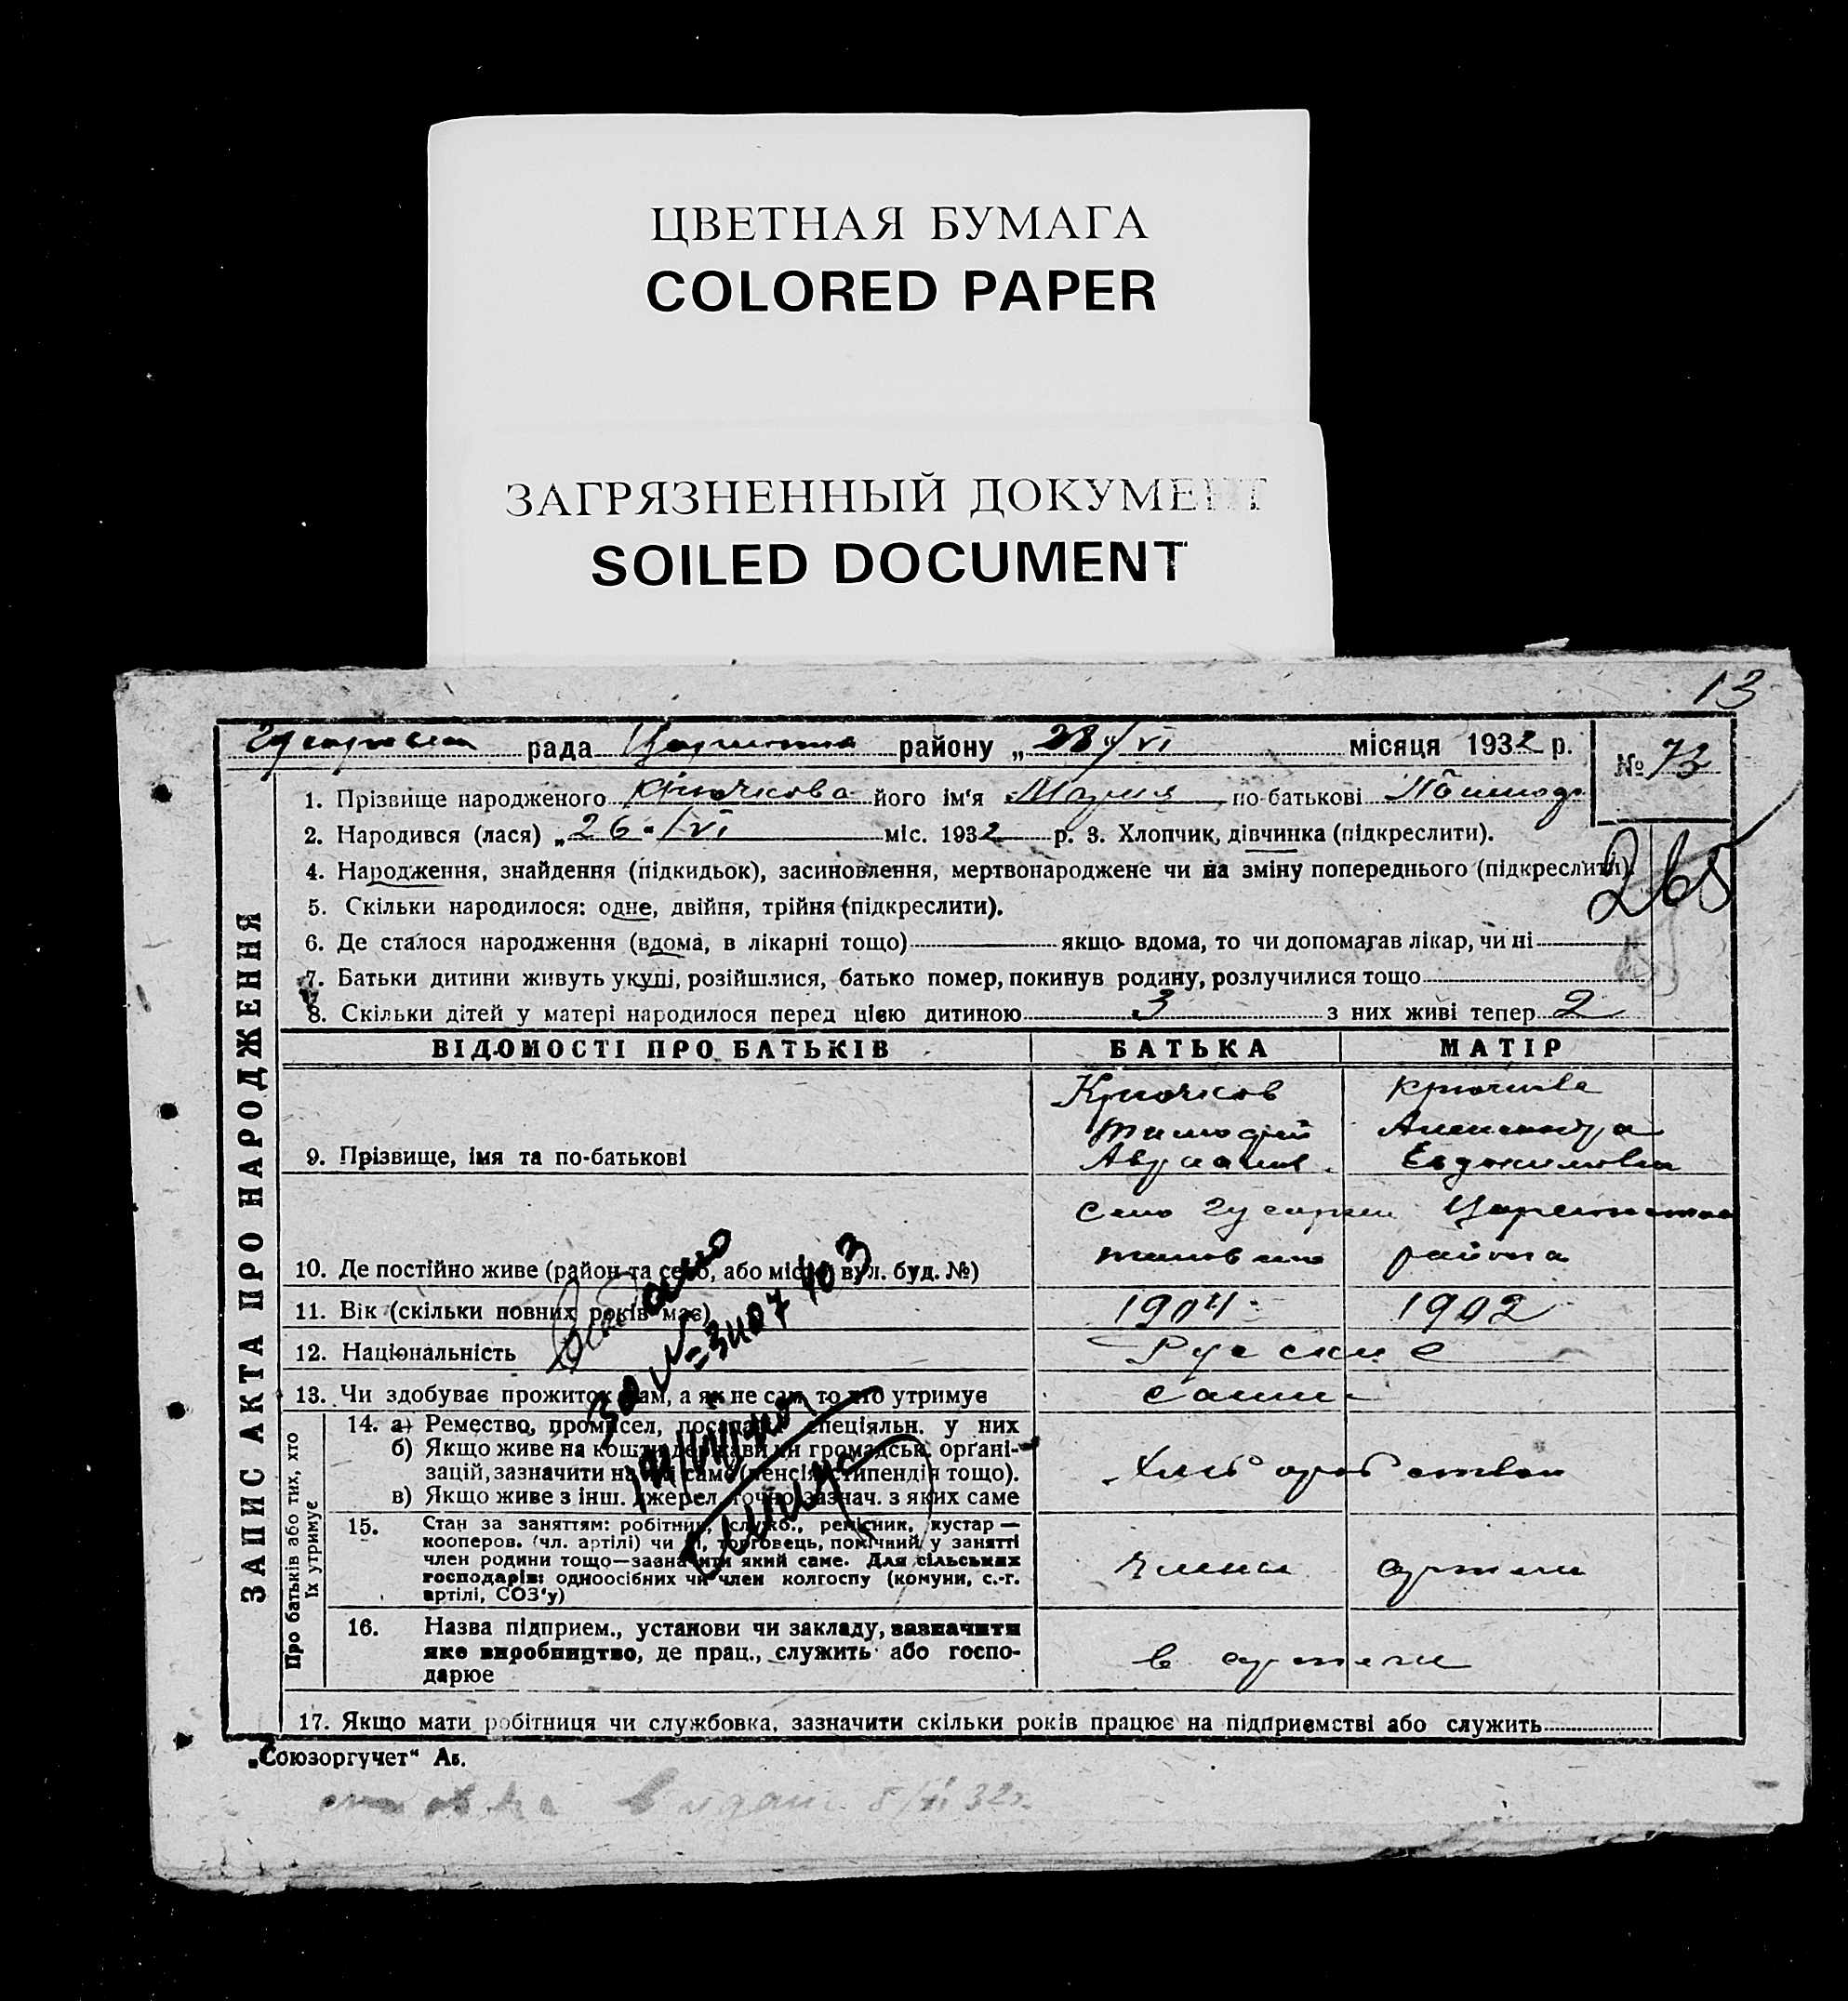 ЦВЕТНАЯ БУМАГА
COLORED PAPER
ЗАГРЯЗНЕННЫЙ ДОКУМЕНТ
SOILED DOCUMENT
13
рада району „28“/VI місяця 1932 р.
№ 73
1. Прізвище народженого Крючкова його ім'я Мария по-батькові
2. Народився (лася) „26“/VI міс. 1932 р. 3. Хлопчик, дівчинка (підкреслити).
4. Народження, знайдення (підкидьок), засиновлення, мертвонароджене чи на зміну попереднього (підкреслити).
265
5. Скільки народилося: одне, двійня, трійня (підкреслити).
6. Де сталося народження (вдома, в лікарні тощо) якщо вдома, то чи допомагав лікар, чи ні
7. Батьки дитини живуть укупі, розійшлися, батько помер, покинув родину, розлучилися тощо
8. Скільки дітей у матері народилося перед цією дитиною 3 з них живі тепер 2
ЗАПИС АКТА ПРО НАРОДЖЕННЯ
ВІДОМОСТІ ПРО БАТЬКІВ БАТЬКА МАТІР
Крючков
Тимофей Александра
9. Прізвище, імя та по-батькові Евдокимовна
село
района
10. Де постійно живе (район та село, або місто, вул. буд. №)
11. Вік (скільки повних років має) 1904 1902
12. Національність Руские
13. Чи здобуває прожиток сам, а як не сам, то хто утримує сами
Про батьків або тих, хто їх утримує
14. а) Ремество, промисел, посада, спеціяльн. у них
б) Якщо живе на кошти держави чи громадськ. орґані-
зацій, зазначити на які саме (пенсія, стипендія тощо).
в) Якщо живе з інш. джерел, точно зазнач. з яких саме
15. Стан за заняттям: робітник, служб., ремісник, кустар—
кооперов. (чл. артілі) чи ні, торговець, помічний у занятті
член родини тощо—зазначити який саме. Для сільських
господарів: одноосібних чи член колгоспу (комуни, с.-г.
артілі, СОЗ'у)
члены артели
16. Назва підприєм., установи чи закладу, зазначити
яке виробництво, де прац., служить або госпо-
дарює
в артели
17. Якщо мати робітниця чи службовка, зазначити скільки років працює на підприємстві або служить
„Союзоргучет“ Ав.